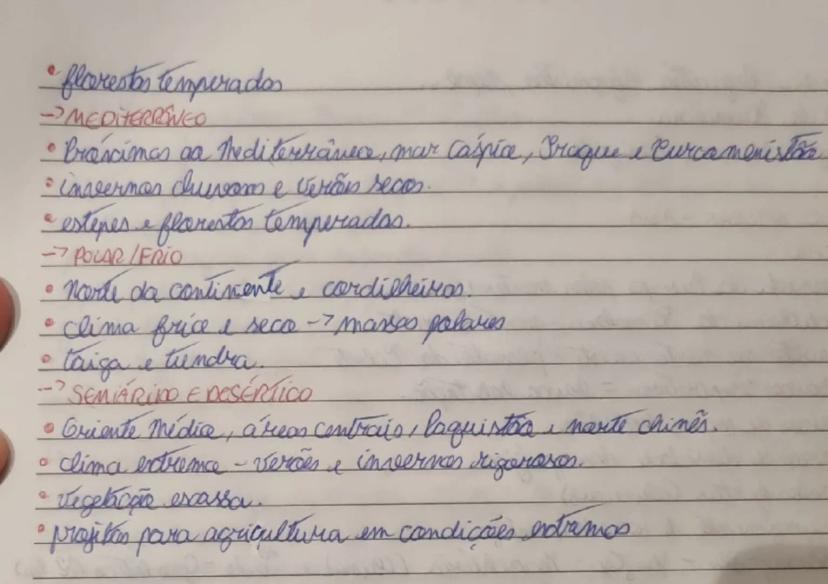 • florestas temperadas
-> MEDITERRÂNEO
• Próximos ao Mediterrâneo, mar Cáspio, Iraque e Turcomenistão
• invernos chuvosos e verões secos.
• estepes e florestas temperadas.
-> POLAR/FRIO
• Norte do continente e cordilheiras.
• clima frio e seco -> massas polares
• taiga e tundra.
-> SEMIÁRIDO E DESÉRTICO
• Oriente Médio, áreas centrais, Paquistão e norte chinês.
• clima extremo - verões e invernos rigorosos.
• vegetação escassa.
• projetos para agricultura em condições extremas